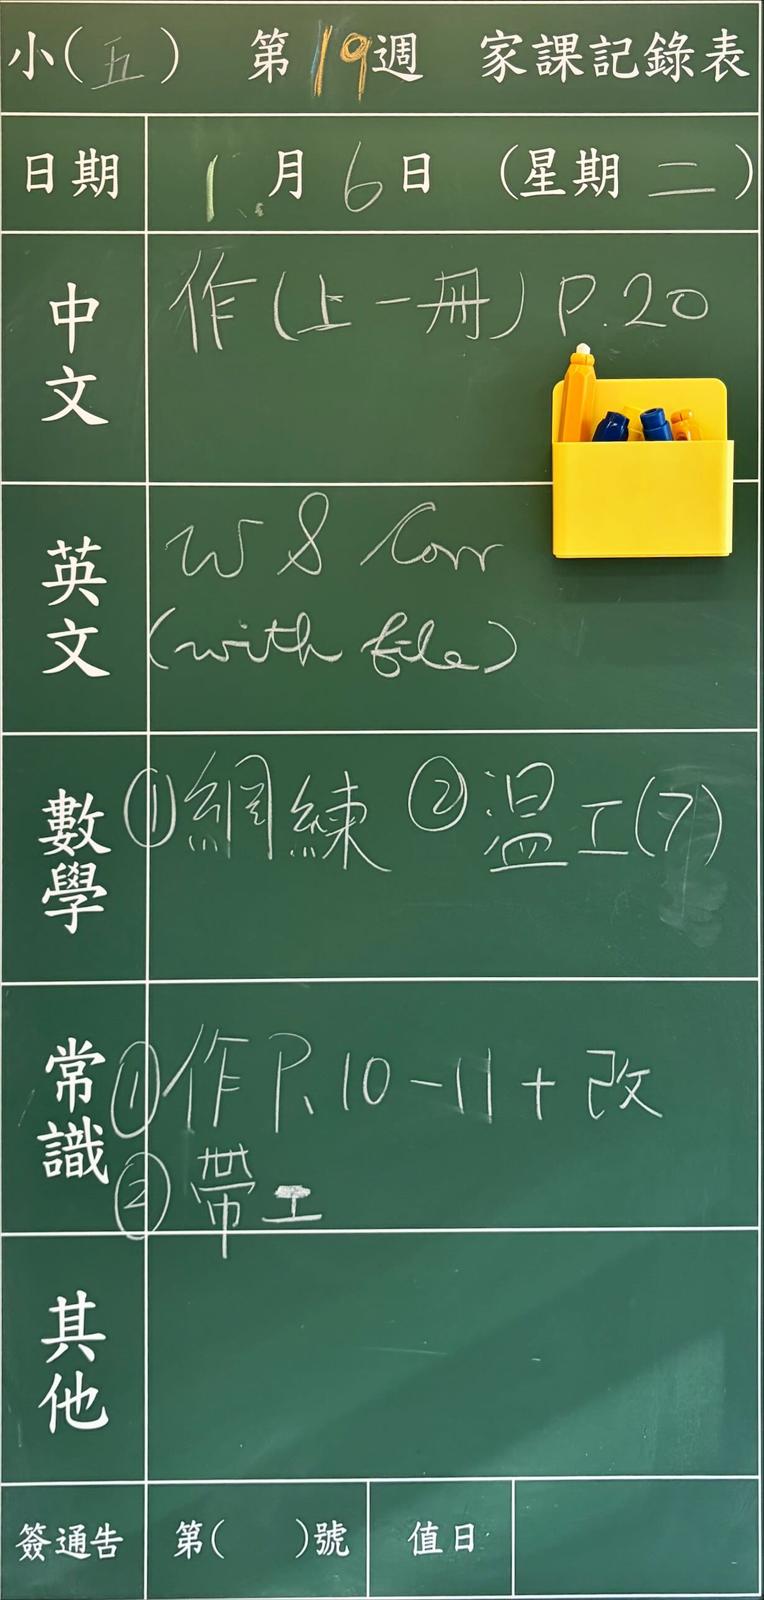 小(五) 第19週 家課記錄表
日期 1月6日 (星期二)
中文 作(上一冊) P.20
英文 WS Corr
(with file)
數學 ①網練 ②温工(7)
常識 ①作P.10-11+改
②帶工
其他
簽通告 第( )號 值日